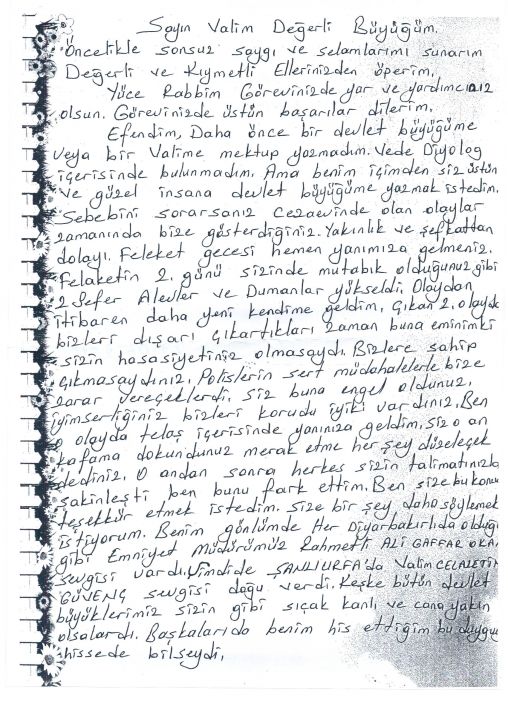 Sayın Valim Değerli Büyüğüm.
Öncelikle sonsuz saygı ve selamlarımı sunarım
Değerli ve Kıymetli Ellerinizden öperim.
Yüce Rabbim Görevinizde yar ve yardımcınız
olsun. Görevinizde üstün başarılar dilerim.
Efendim, Daha önce bir devlet büyüğüme
veya bir Valime mektup yazmadım. Vede Diyolog
içerisinde bulunmadım. Ama benim içimden siz üstün
ve güzel insana devlet büyüğüme yazmak istedim.
Sebebini sorarsanız cezaevinde olan olaylar
zamanında bize gösterdiğiniz. Yakınlık ve şefkattan
dolayı. Feleket gecesi hemen yanımıza gelmeniz.
Felaketin 2. günü sizinde mutabık olduğunuz gibi
2 Sefer Alevler ve Dumanlar yükseldi. Olaydan
itibaren daha yeni kendime geldim, Çıkan 2. olayda
bizleri dışarı çıkartıkları zaman buna eminimki
sizin hasasiyetiniz olmasaydı. Bizlere sahip
çıkmasaydınız. Polislerin sert müdahalelerle bize
zarar vereceklerdi. siz buna engel oldunuz.
iyimserliğiniz bizleri korudu iyiki vardınız. Ben
o olayda telaş içerisinde yanınıza geldim. siz o an
kafama dokundunuz merak etme her şey düzelecek
dediniz. O andan sonra herkes sizin talimatınızla
sakinleşti ben bunu fark ettim. Ben size bu konu
teşekkür etmek istedim. size bir şey daha söylemek
istiyorum. Benim gönlümde Her Diyarbakırlıda olduğu
gibi Emniyet Müdürümüz Rahmetli ALİ GAFFAR OKA
sevgisi vardı. Şimdide ŞANLIURFA'da Valim CELALETTİN
GÜVENÇ sevgisi dağu verdi. Keşke bütün devlet
büyüklerimiz sizin gibi sıcak kanlı ve cana yakın
olsalardı. Başkalarıda benim his ettiğim bu duygu
hissede bilseydi.